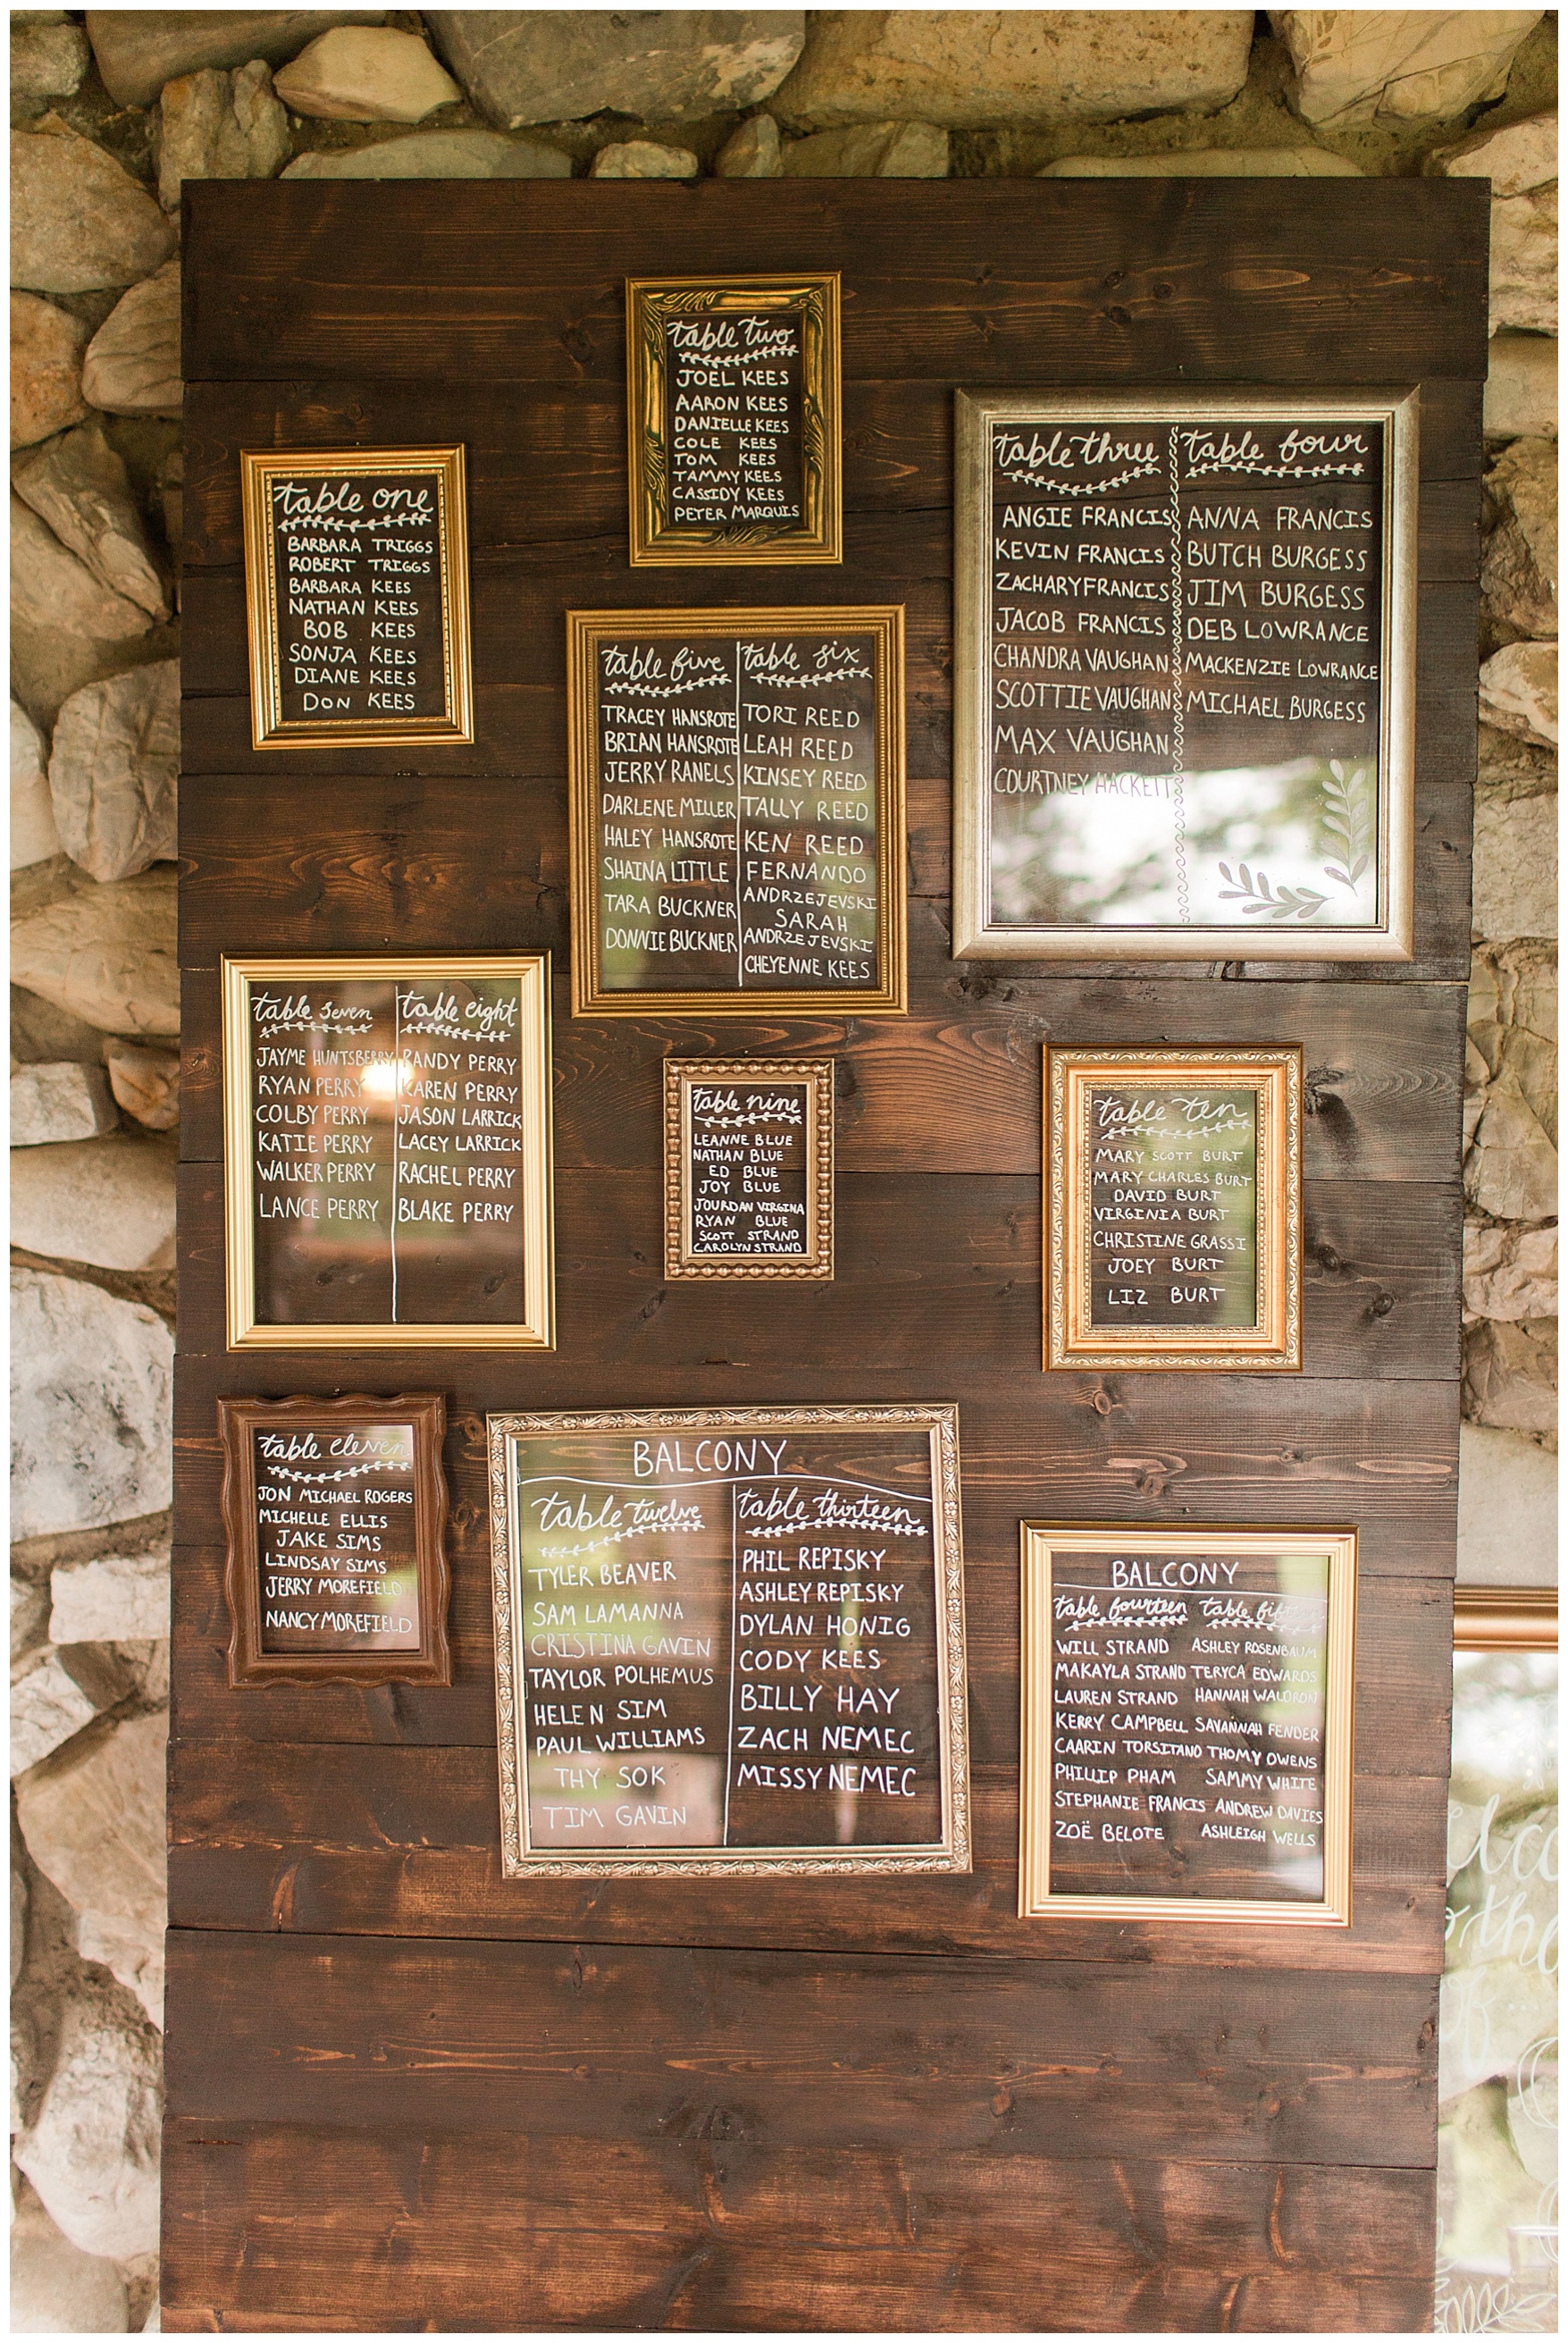 table two
JOEL KEES
AARON KEES
DANIELLE KEES
COLE KEES
TOM KEES
TAMMY KEES
CASSIDY KEES
PETER MARQUIS
table one
BARBARA TRIGGS
ROBERT TRIGGS
BARBARA KEES
NATHAN KEES
BOB KEES
SONJA KEES
DIANE KEES
DON KEES
table three
ANGIE FRANCIS
KEVIN FRANCIS
ZACHARY FRANCIS
JACOB FRANCIS
CHANDRA VAUGHAN
SCOTTIE VAUGHAN
MAX VAUGHAN
COURTNEY HACKETT
table four
ANNA FRANCIS
BUTCH BURGESS
JIM BURGESS
DEB LOWRANCE
MACKENZIE LOWRANCE
MICHAEL BURGESS
table five
TRACEY HANSROTE
BRIAN HANSROTE
JERRY RANELS
DARLENE MILLER
HALEY HANSROTE
SHAINA LITTLE
TARA BUCKNER
DONNIE BUCKNER
table six
TORI REED
LEAH REED
KINSEY REED
TALLY REED
KEN REED
FERNANDO
ANDRZEJEVSKI
SARAH
ANDRZEJEVSKI
CHEYENNE KEES
table seven
JAYME HUNTSBERRY
RYAN PERRY
COLBY PERRY
KATIE PERRY
WALKER PERRY
LANCE PERRY
table eight
RANDY PERRY
KAREN PERRY
JASON LARRICK
LACEY LARRICK
RACHEL PERRY
BLAKE PERRY
table nine
LEANNE BLUE
NATHAN BLUE
ED BLUE
JOY BLUE
JOURDAN VIRGINA
RYAN BLUE
SCOTT STRAND
CAROLYN STRAND
table ten
MARY SCOTT BURT
MARY CHARLES BURT
DAVID BURT
VIRGINIA BURT
CHRISTINE GRASSI
JOEY BURT
LIZ BURT
table eleven
JON MICHAEL ROGERS
MICHELLE ELLIS
JAKE SIMS
LINDSAY SIMS
JERRY MOREFIELD
NANCY MOREFIELD
BALCONY
table twelve
TYLER BEAVER
SAM LAMANNA
CRISTINA GAVIN
TAYLOR POLHEMUS
HELEN SIM
PAUL WILLIAMS
THY SOK
TIM GAVIN
table thirteen
PHIL REPISKY
ASHLEY REPISKY
DYLAN HONIG
CODY KEES
BILLY HAY
ZACH NEMEC
MISSY NEMEC
BALCONY
table fourteen
WILL STRAND
MAKAYLA STRAND
LAUREN STRAND
KERRY CAMPBELL
CAARIN TORSITANO
PHILLIP PHAM
STEPHANIE FRANCIS
ZOË BELOTE
table
ASHLEY ROSENBAUM
TERYCA EDWARDS
HANNAH WALDRON
SAVANNAH FENDER
THOMY OWENS
SAMMY WHITE
ANDREW DAVIES
ASHLEIGH WELLS